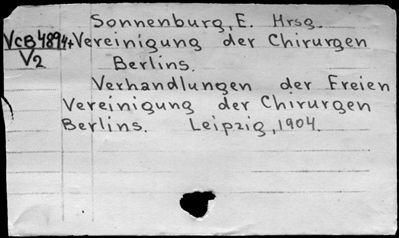 Sonnenburg, E. Hrsg.
VcB4894t Vereinigung der Chirurgen
V2 Berlins.
Verhandlungen der Freien
Vereinigung der Chirurgen
Berlins. Leipzig, 1904.